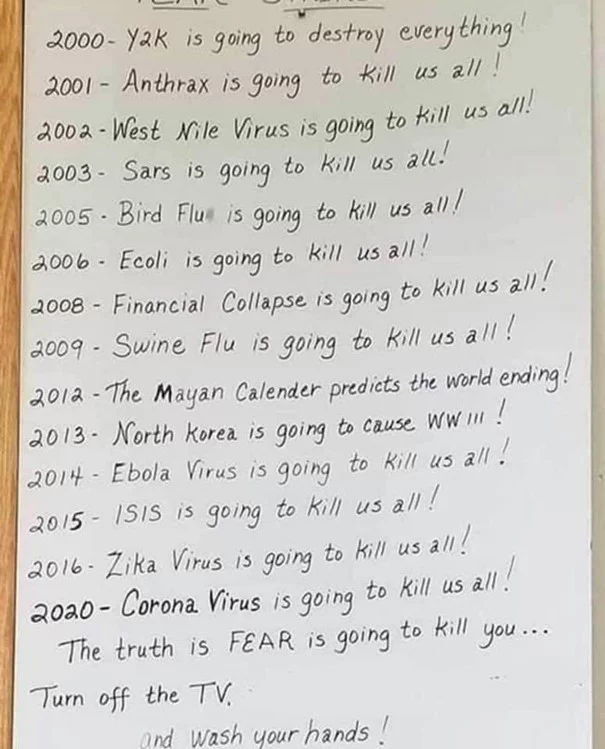 2000 - Y2K is going to destroy everything!
2001 - Anthrax is going to kill us all!
2002 - West Nile Virus is going to kill us all!
2003 - Sars is going to kill us all!
2005 - Bird Flu is going to kill us all!
2006 - Ecoli is going to kill us all!
2008 - Financial Collapse is going to kill us all!
2009 - Swine Flu is going to kill us all!
2012 - The Mayan Calender predicts the world ending!
2013 - North Korea is going to cause WW III!
2014 - Ebola Virus is going to kill us all!
2015 - ISIS is going to kill us all!
2016 - Zika Virus is going to kill us all!
2020 - Corona Virus is going to kill us all!
The truth is FEAR is going to kill you...
Turn off the TV.
and wash your hands!